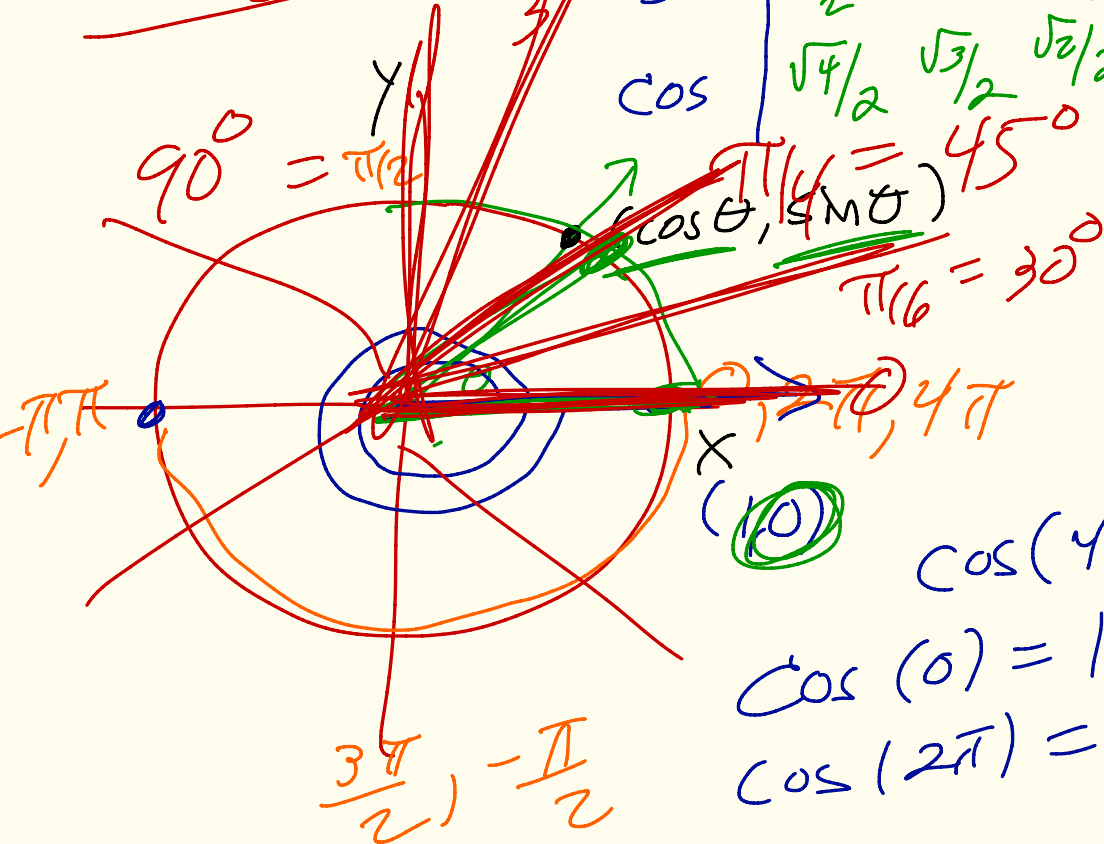 cos
√4/2 √3/2 √2/2
Y
90° = π/2
π/4 = 45°
(cosθ, sinθ)
π/6 = 30°
-π, π
0, 2π, 4π
0
X
(1,0)
cos(4
cos(0) = 1
cos(2π) =
3π/2, -π/2